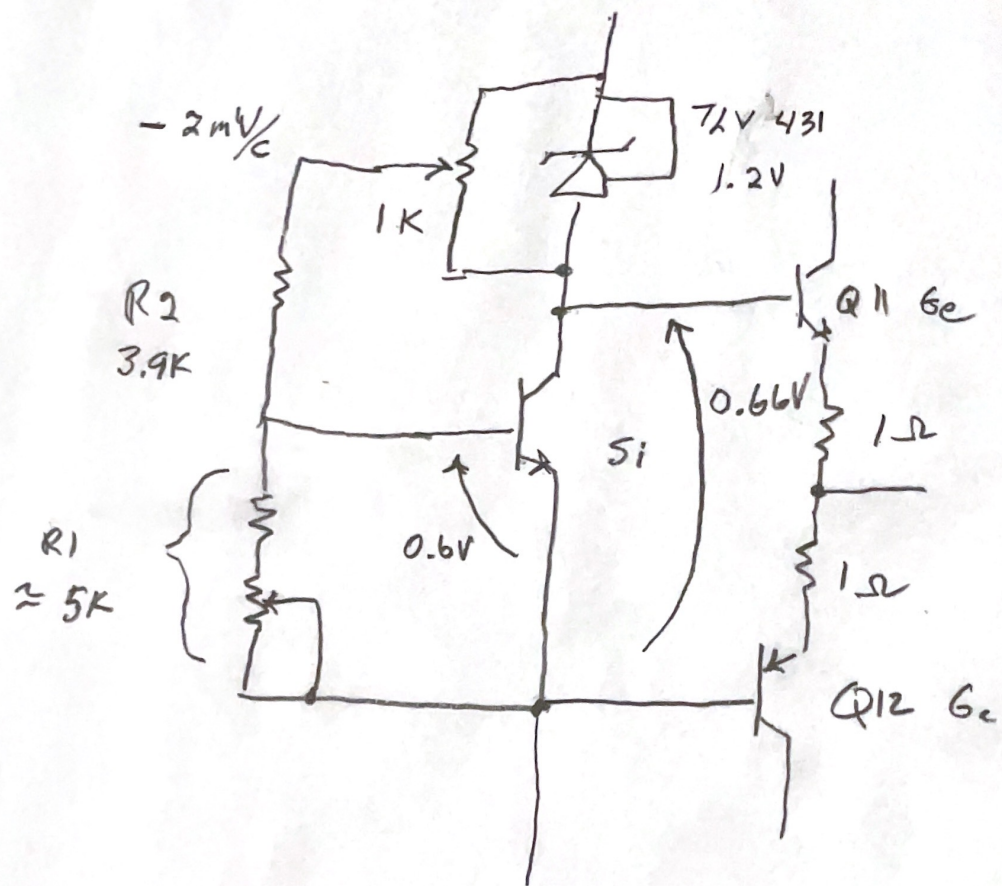 - 2mV/c
TLV 431
1.2V
1K
R2
3.9K
Q11 Ge
0.66V
1Ω
Si
0.6V
R1
≈ 5K
1Ω
Q12 Ge